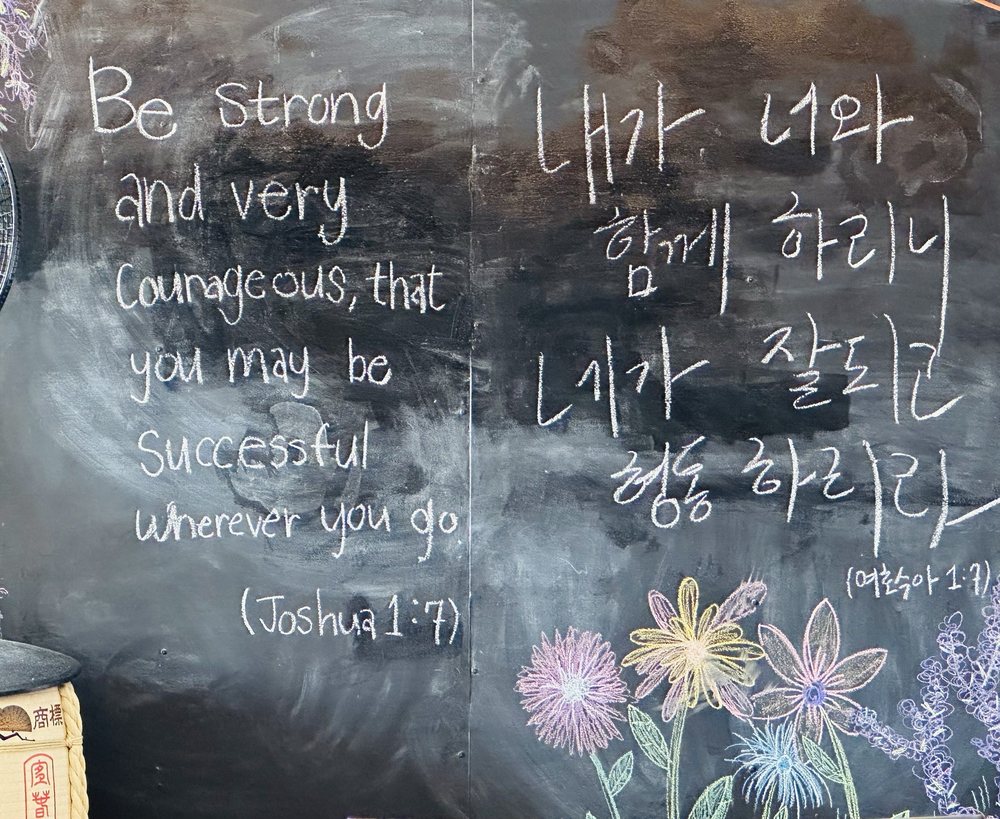 Be strong
and very
Courageous, that
you may be
successful
wherever you go.
(Joshua 1:7)
내가 너와
함께 하리니
네가 잘되고
형통 하리라
(여호수아 1:7)
商標